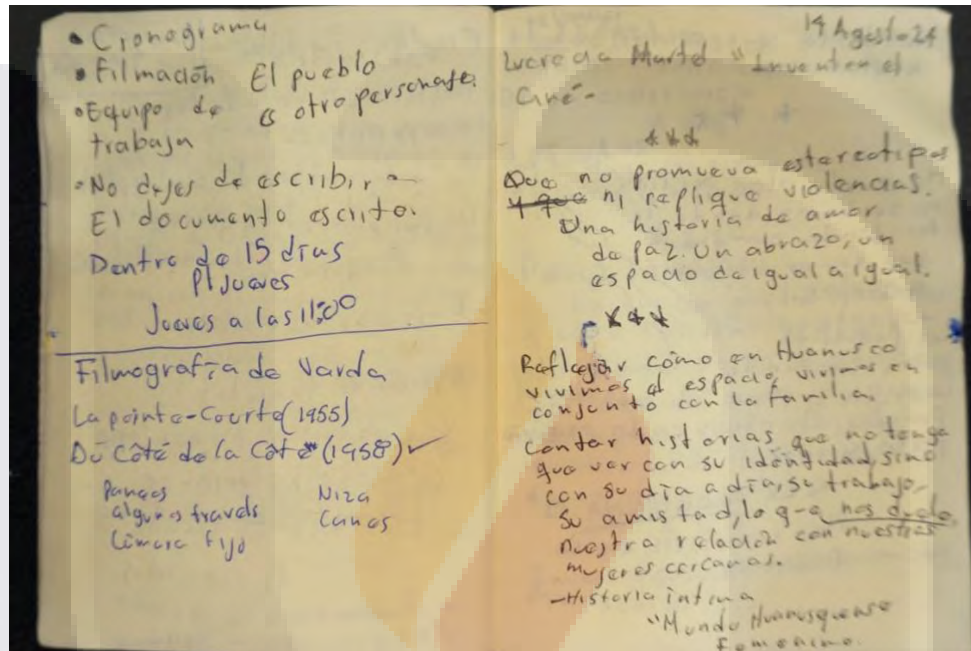 • Cronograma
• Filmación
• Equipo de
trabajo
El pueblo
es otro personaje.
• No dejes de escribir -
El documento escrito.
Dentro de 15 días
Pl Jueves
Jueves a las 11:00
Filmografía de Varda
La pointe-Courte (1955)
Dú Côté de la Côte (1958) ✓
Paneos
algunos travels
Cámara fijo
Niza
Canes
14 Agosto-24
Lucrecia Martel "Inventen el
Cine"-
***
Que no promueva estereotipos
y que ni replique violencias.
Una historia de amor
de paz. Un abrazo, un
espacio de igual a igual.
***
Reflejar cómo en Huanusco
vivimos el espacio, vivimos en
conjunto con la familia.
Contar historias que no tenga
que ver con su identidad, sino
con su día a día, su trabajo,
su amistad, lo que nos duele,
nuestra relación con nuestras
mujeres cercanas.
-Historia íntima
"Mundo Huanusquense
Femenino.